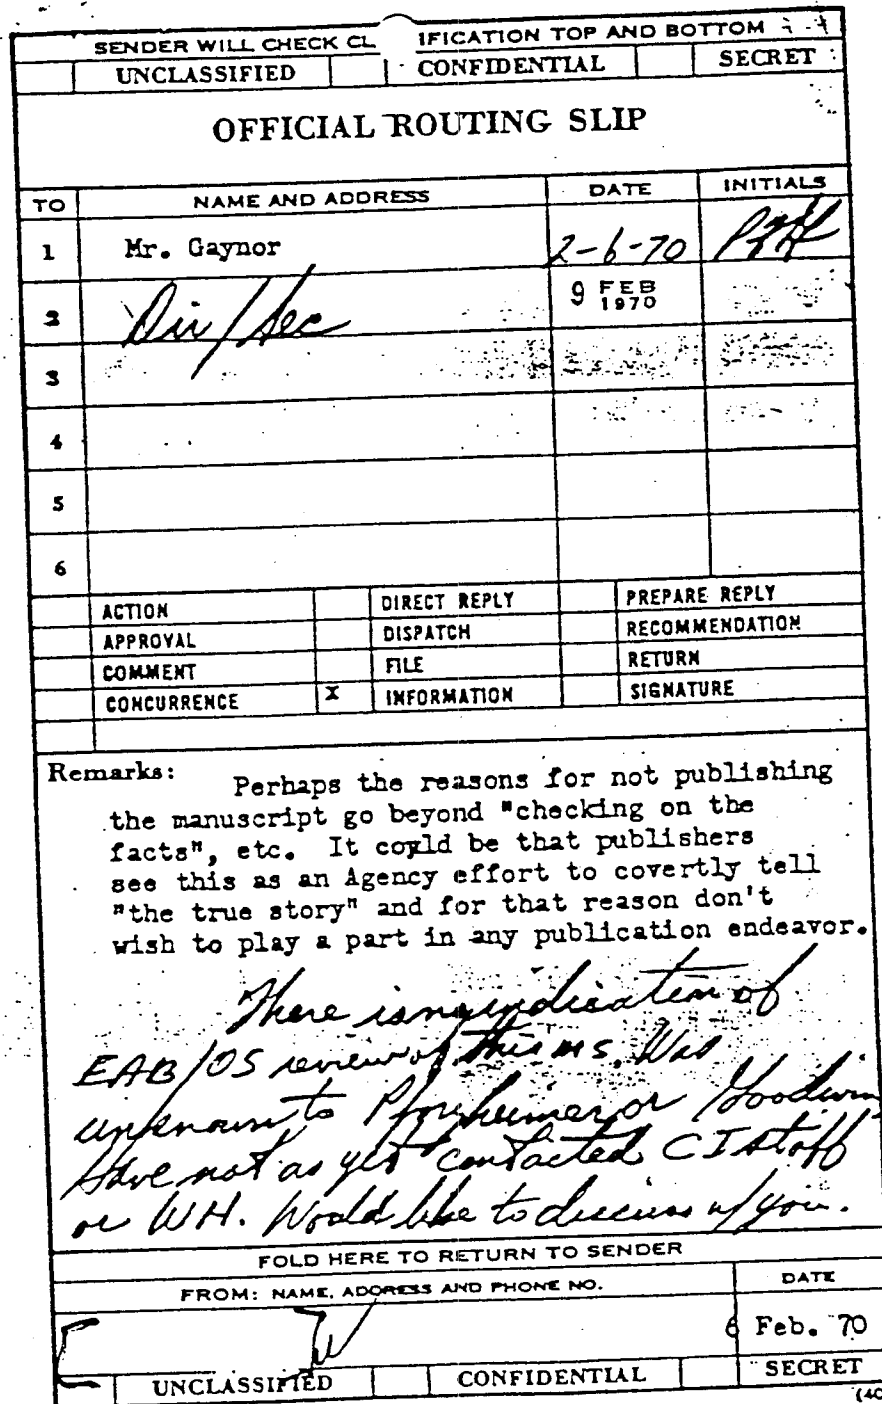 SENDER WILL CHECK CL IFICATION TOP AND BOTTOM
UNCLASSIFIED CONFIDENTIAL SECRET
OFFICIAL ROUTING SLIP
TO NAME AND ADDRESS DATE INITIALS
1 Mr. Gaynor 2-6-70
2 Dir/Sec 9 FEB 1970
3
4
5
6
ACTION DIRECT REPLY PREPARE REPLY
APPROVAL DISPATCH RECOMMENDATION
COMMENT FILE RETURN
CONCURRENCE X INFORMATION SIGNATURE
Remarks: Perhaps the reasons for not publishing
the manuscript go beyond "checking on the
facts", etc. It could be that publishers
see this as an Agency effort to covertly tell
"the true story" and for that reason don't
wish to play a part in any publication endeavor.
There is no indication of
EAB/OS review of this ms. Was
unknown to Pforzheimer or Goodwin
Have not as yet contacted CI staff
or WH. Would like to discuss w/you.
FOLD HERE TO RETURN TO SENDER
FROM: NAME, ADDRESS AND PHONE NO. DATE
6 Feb. 70
UNCLASSIFIED CONFIDENTIAL SECRET
(40